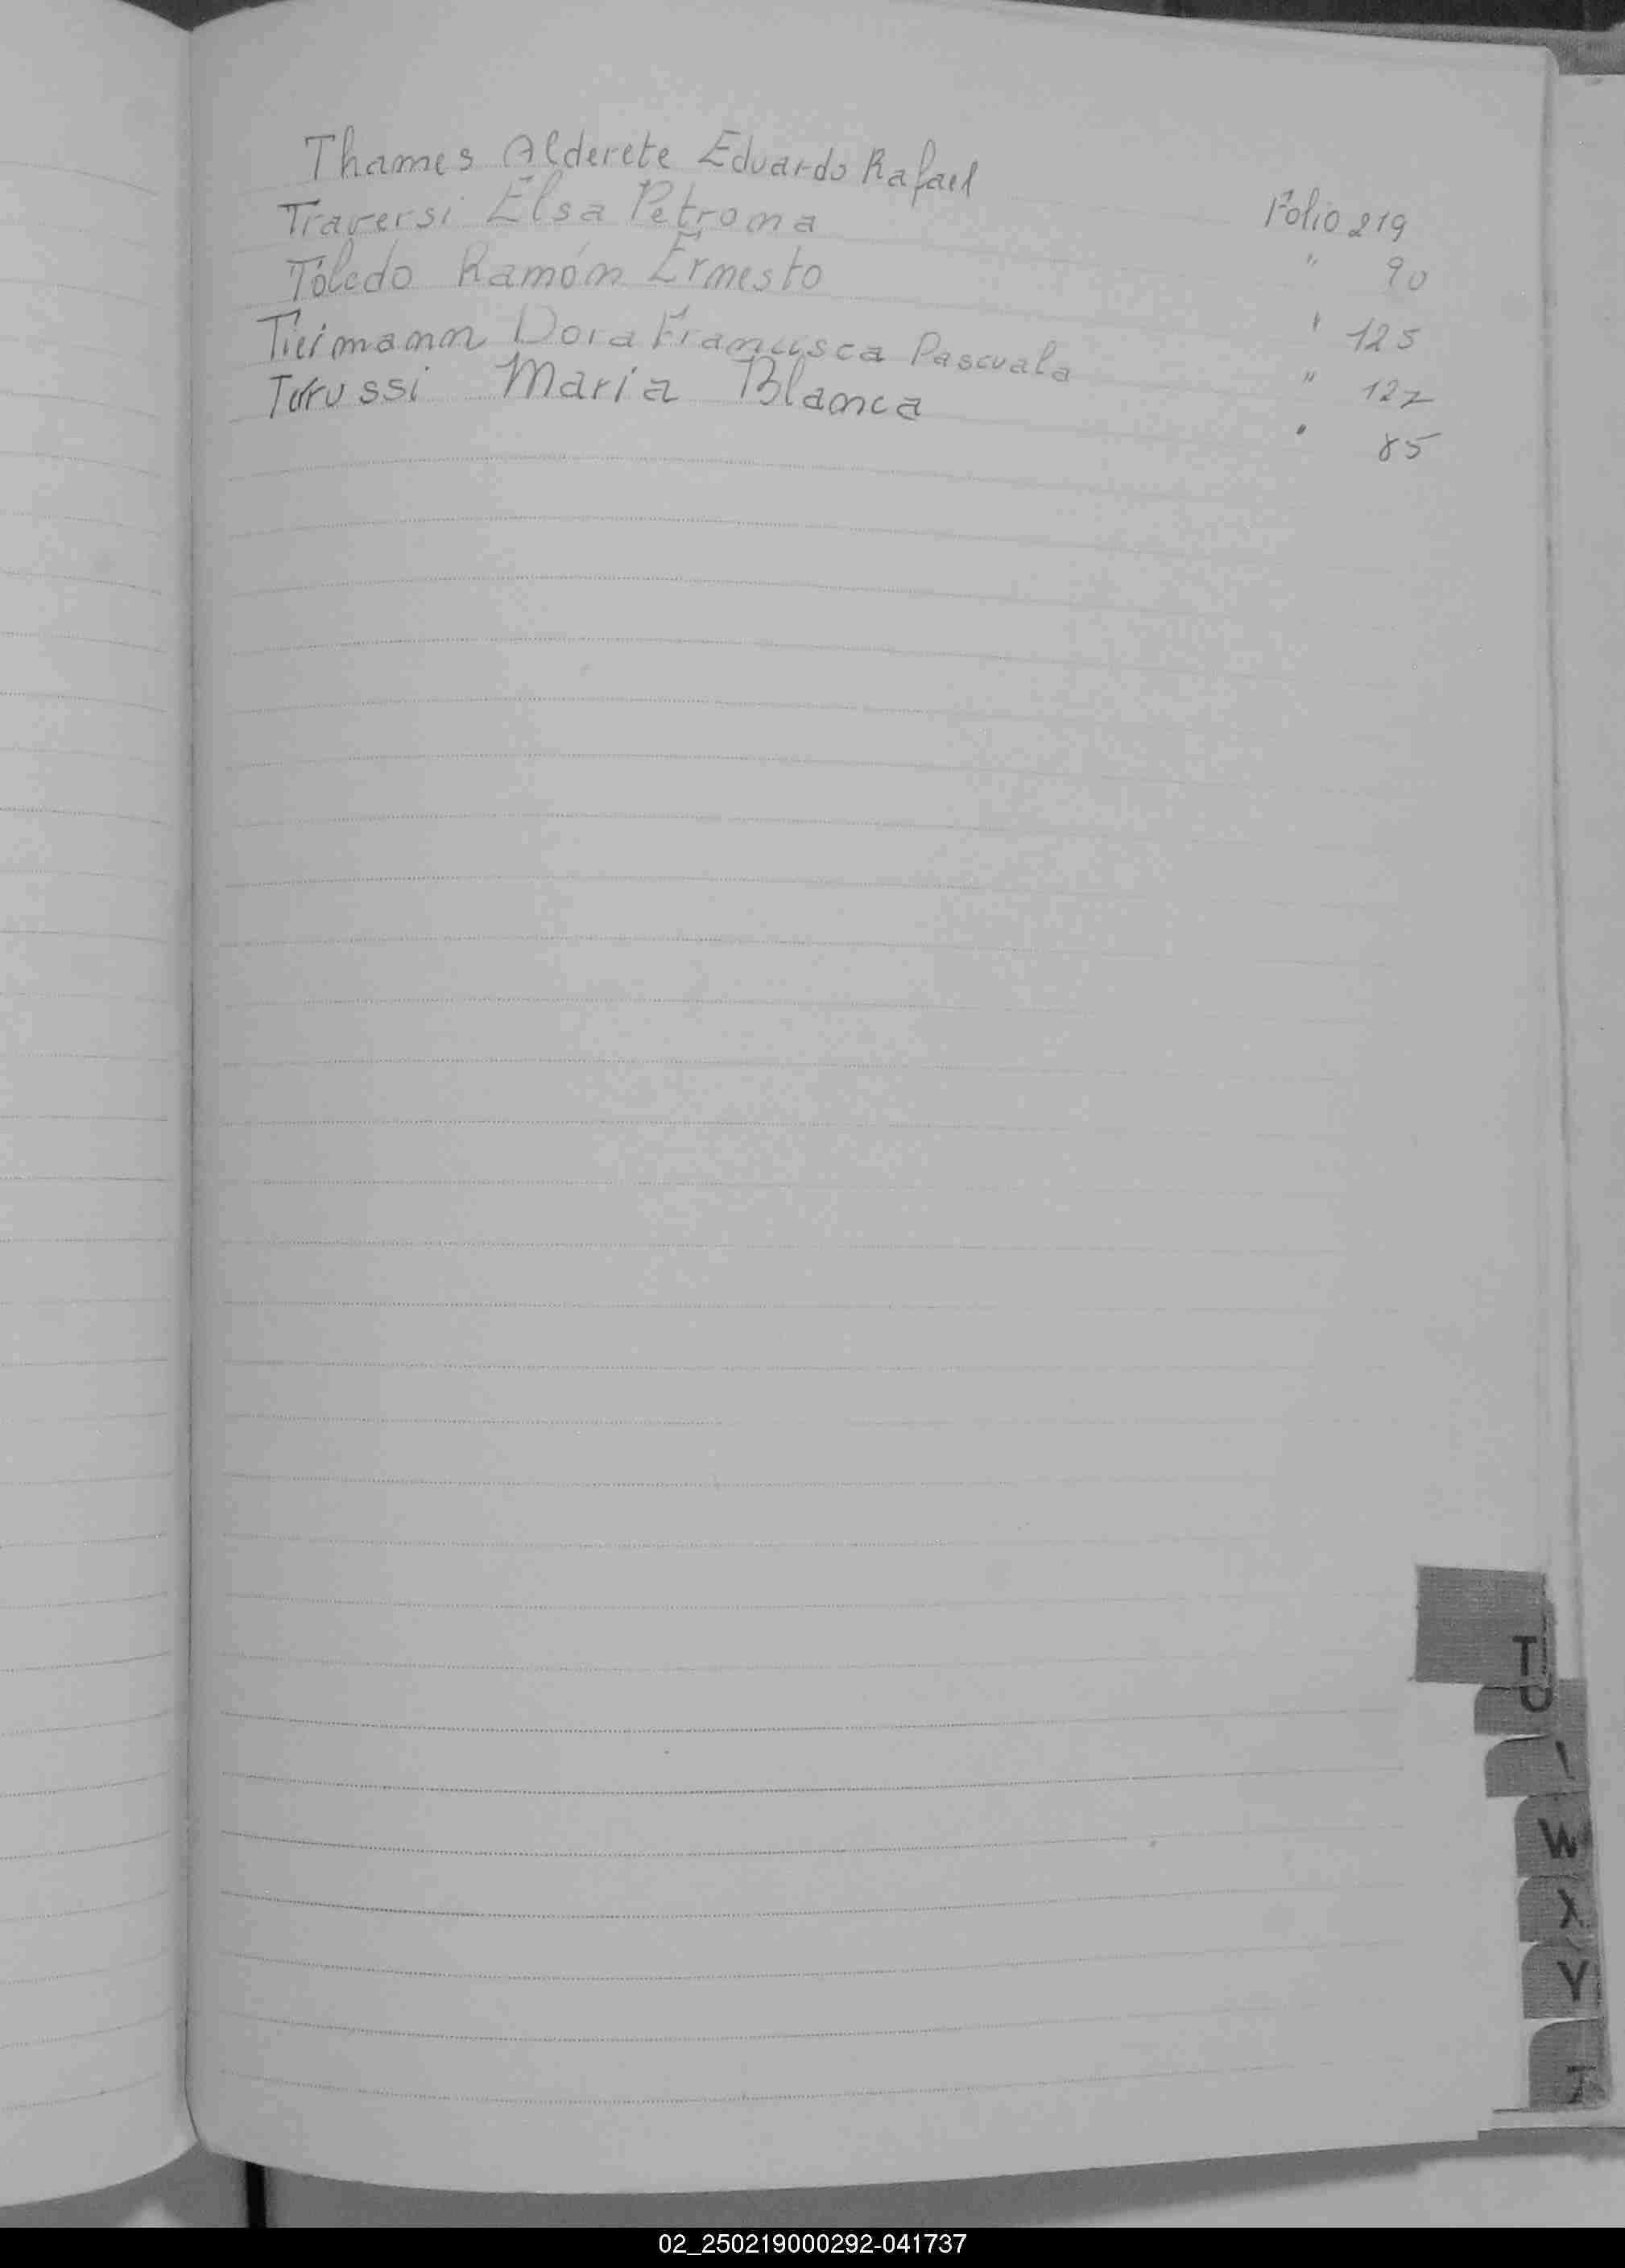 Thames Alderete Eduardo Rafael Folio 219
Traversi Elsa Petrona " 90
Toledo Ramón Ernesto " 125
Dora Francisca Pascuala " 127
Maria Blanca " 85
T
U
W
X
Y
02_250219000292-041737